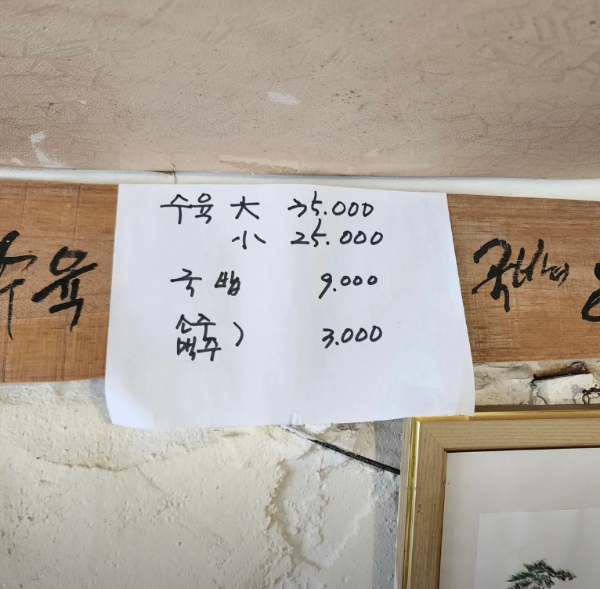 수육 大 35.000
小 25.000
국밥 9.000
소주
맥주 ) 3.000
수육
국밥